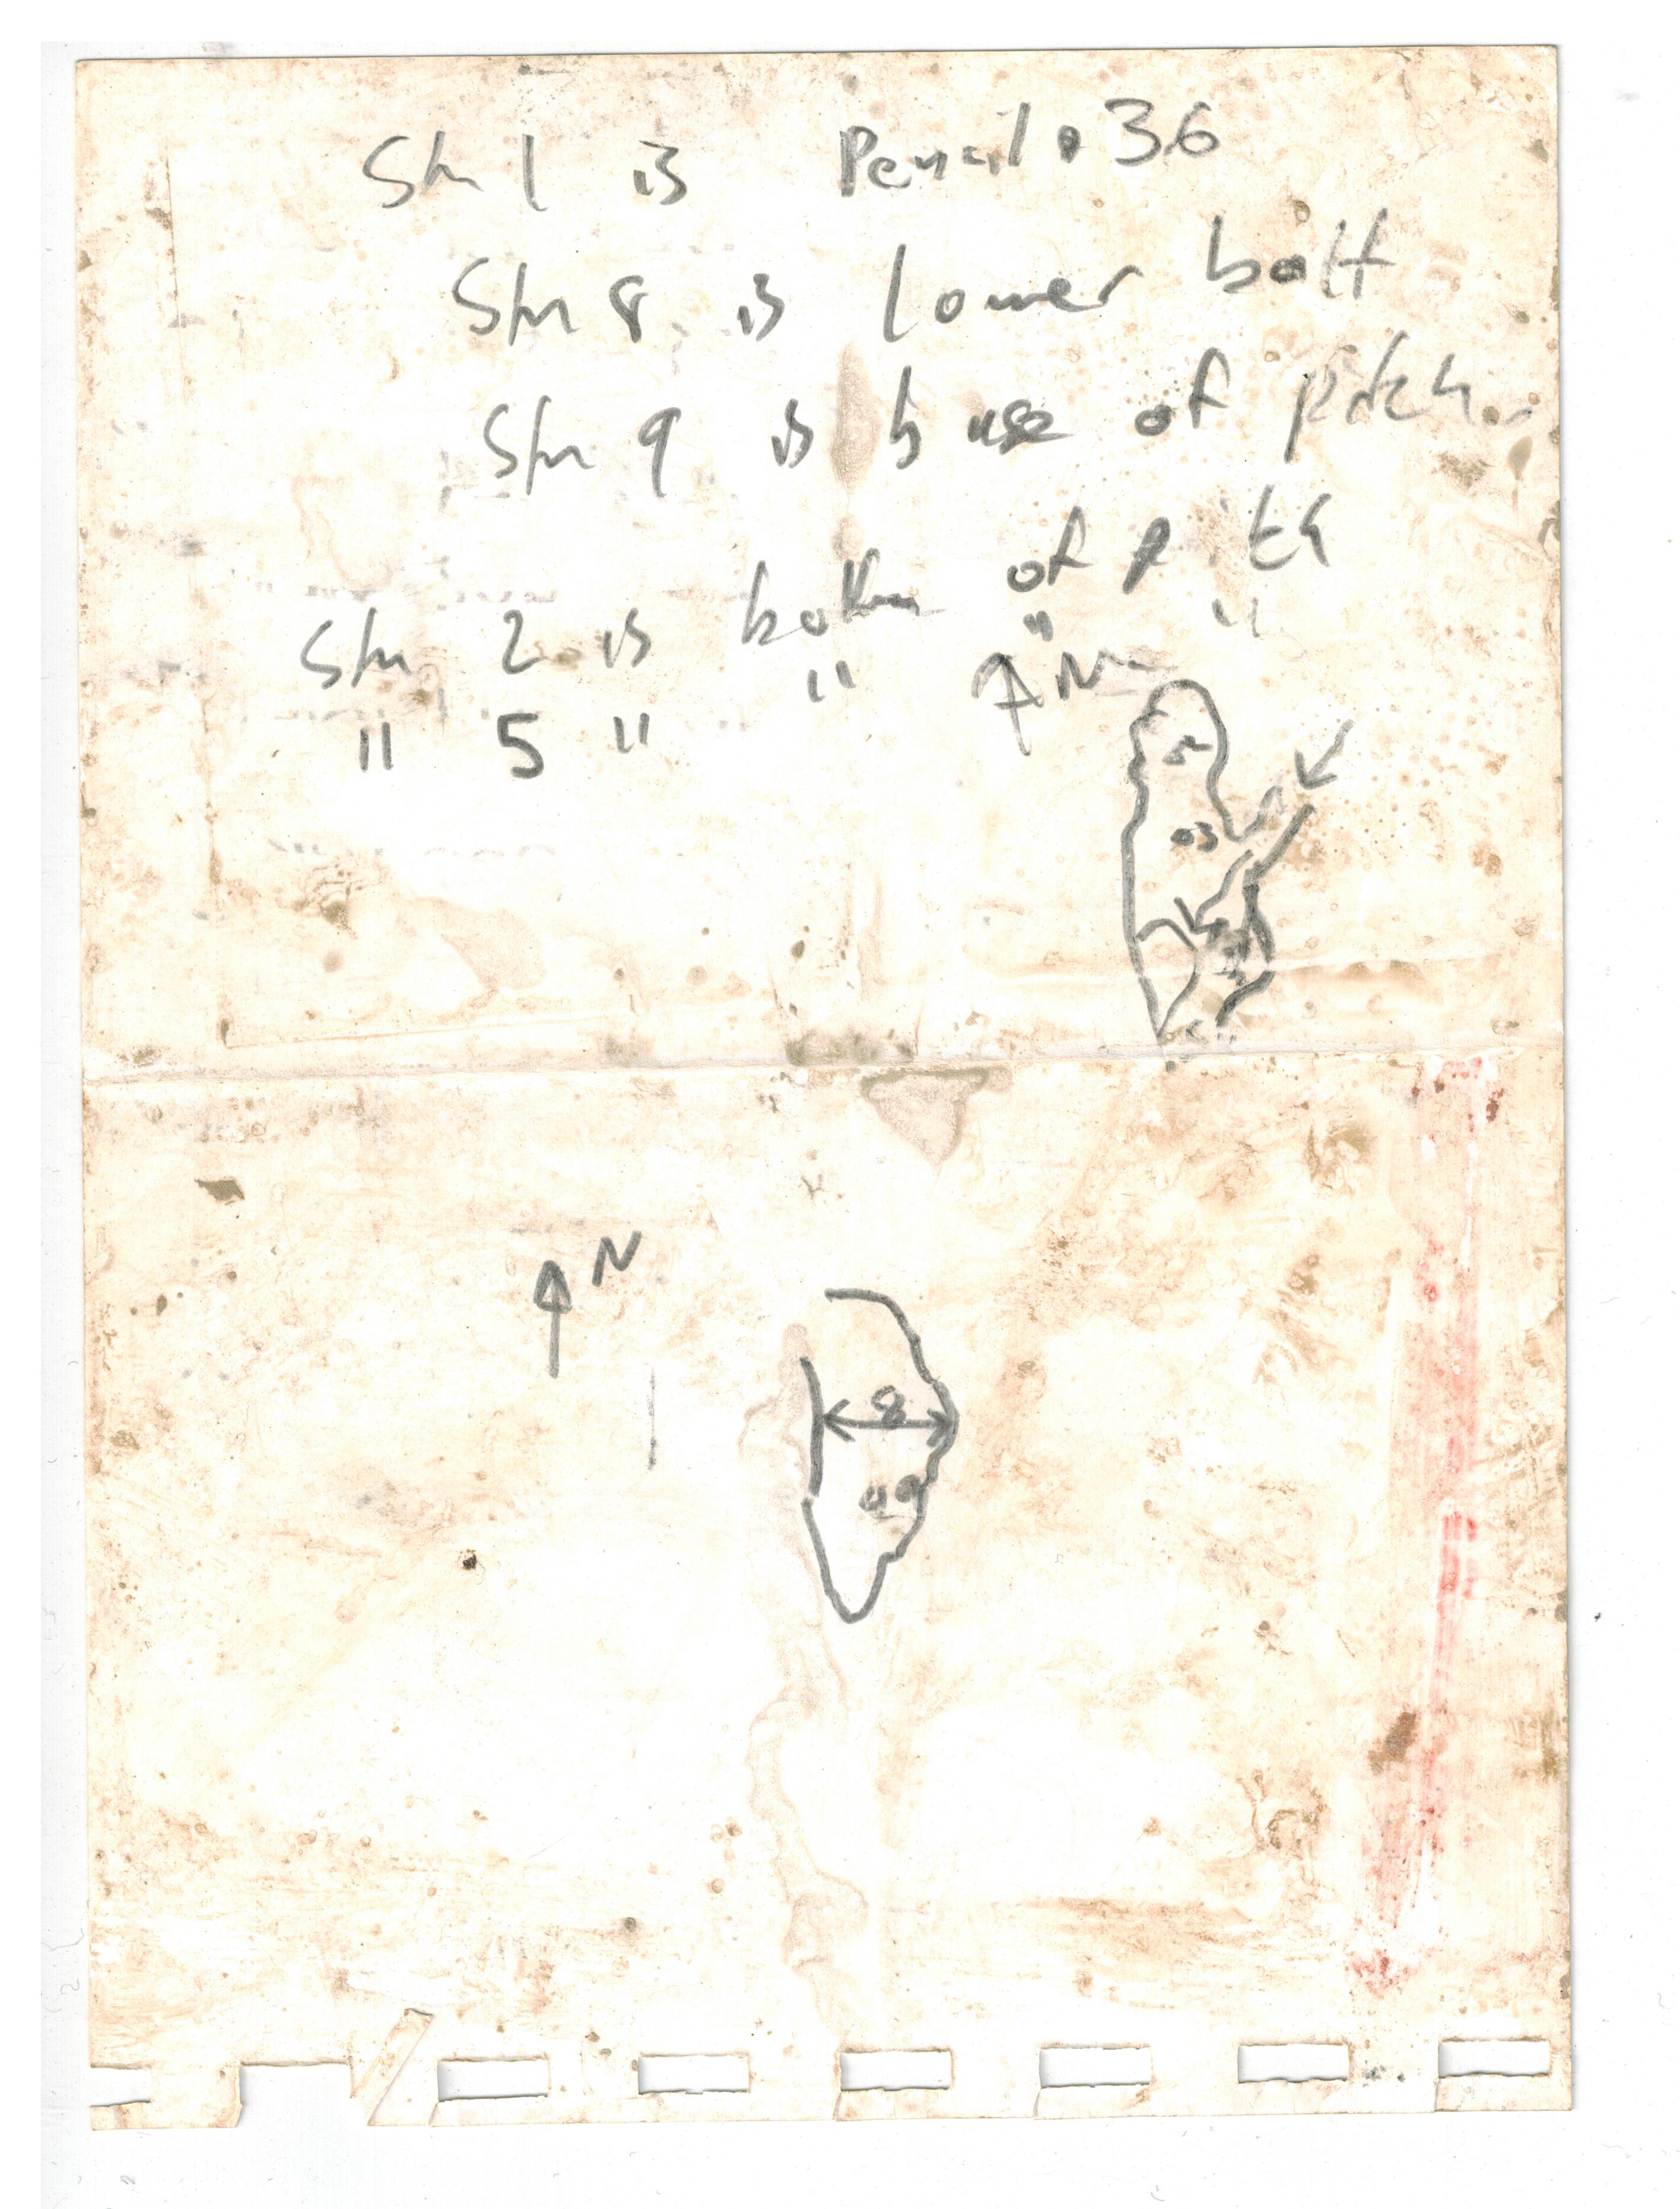 Stn 1 is Pencil • 36
Stn 8 is lower bolt
Stn 9 is base of pitch
Stn 2 is bottom of pitch
" 5 " " " "
N
5
03
N
8